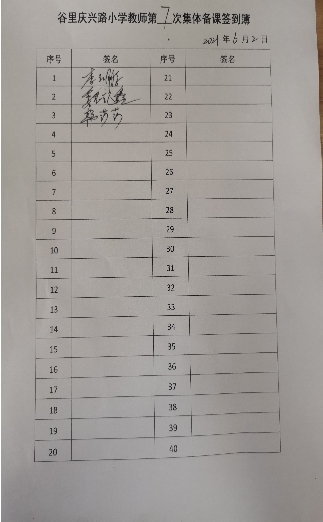 谷里庆兴路小学教师第7次集体备课签到簿
2021年6月2日
序号 签名 序号 签名
1 21
2 22
3 23
4 24
5 25
6 26
7 27
8 28
9 29
10 30
11 31
12 32
13 33
14 34
15 35
16 36
17 37
18 38
19 39
20 40